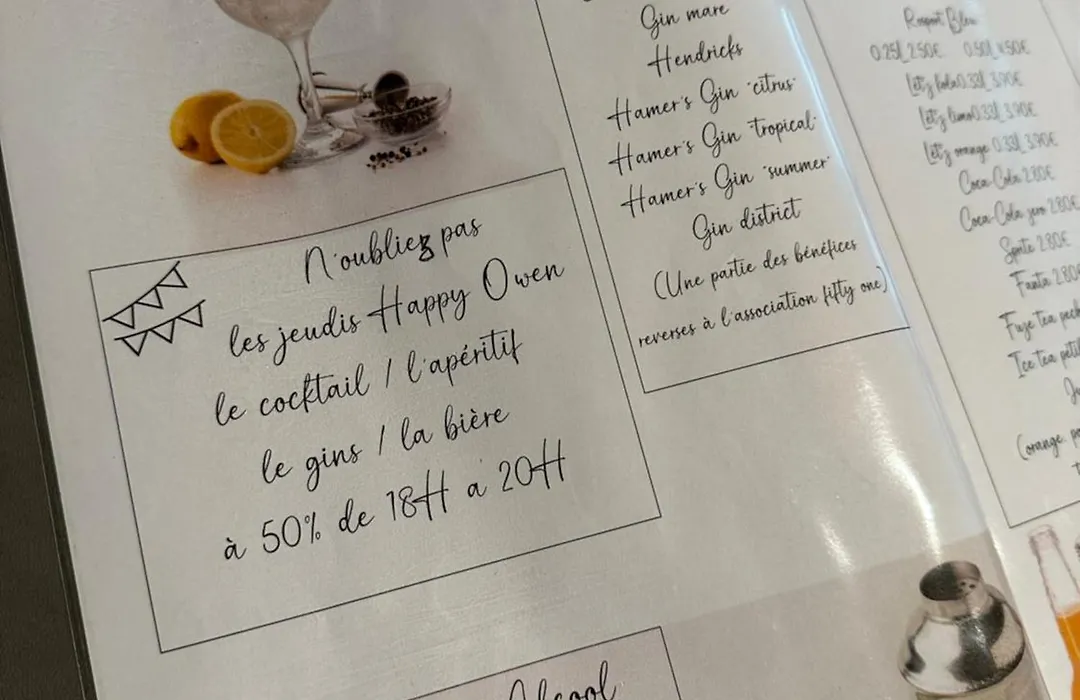 N'oubliez pas
les jeudis Happy Owen
le cocktail / l'apéritif
le gins / la bière
à 50% de 18H à 20H
Gin mare
Hendricks
Hamer's Gin "citrus"
Hamer's Gin "tropical"
Hamer's Gin "summer"
Gin district
(Une partie des bénéfices
reverses à l'association fifty one)
0.25l 2.50€ 0.50l 4.50€
Let'z kola 0.33l 3.90€
Let'z limo 0.33l 3.90€
Let'z orange 0.33l 3.90€
Coca-Cola 2.80€
Coca-Cola zero 2.80€
Sprite 2.80€
Fanta 2.80€
Fuze tea
Ice tea
(orange,
Alcool